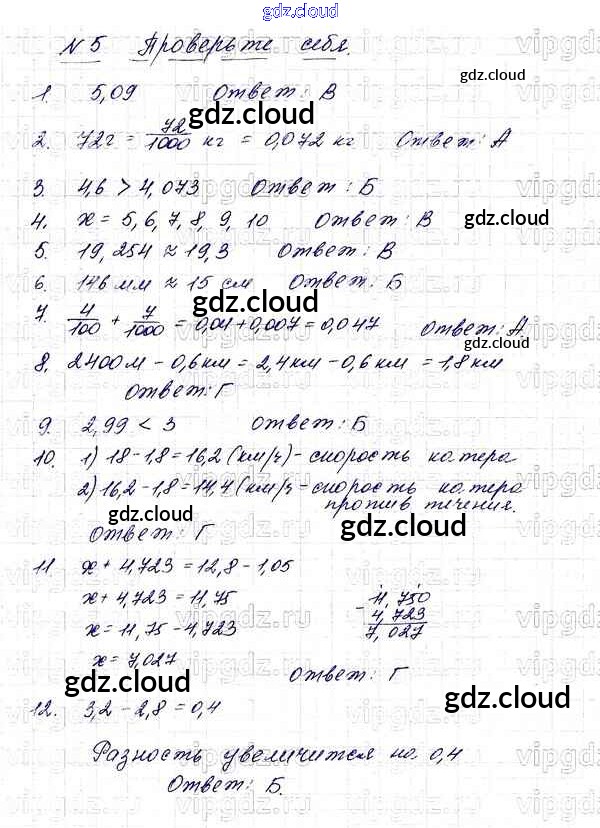 gdz.cloud
№ 5 Проверьте себя.
gdz.cloud
1. 5,09 Ответ: В
gdz.cloud
2. 72г = 72/1000 кг = 0,072 кг Ответ: А
3. 4,6 > 4,073 Ответ: Б
4. x = 5, 6, 7, 8, 9, 10 Ответ: В
gdz.cloud
5. 19,254 ≈ 19,3 Ответ: В
6. 146 мм ≈ 15 см Ответ: Б
gdz.cloud
7. 4/100 + 7/1000 = 0,04 + 0,007 = 0,047 Ответ: А
gdz.cloud
8. 2400м – 0,6км = 2,4км – 0,6км = 1,8км
Ответ: Г
9. 2,99 < 3 Ответ: Б
10. 1) 18 – 1,8 = 16,2 (км/ч) – скорость катера
2) 16,2 – 1,8 = 14,4 (км/ч – скорость катера
против течения.
gdz.cloud
gdz.cloud
Ответ: Г
11. x + 4,723 = 12,8 – 1,05
x + 4,723 = 11,75
x = 11,75 – 4,723
x = 7,027
- 11,750
4,723
7,027
Ответ: Г
gdz.cloud
gdz.cloud
12. 3,2 – 2,8 = 0,4
Разность увеличится на 0,4
Ответ: Б.
vipgdz.ru